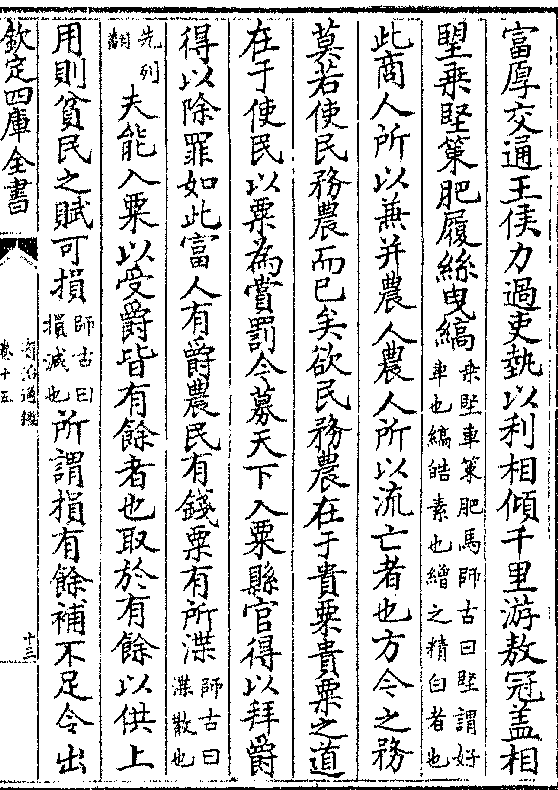 富厚交通王侯力過吏埶以利相傾千里游敖冠盖相
朢乘堅策肥履絲曳縞乘堅車策肥馬師古曰堅謂好
車也縞皓素也繒之精白者也
此商人所以兼并農人農人所以流亡者也方今之務
莫若使民務農而已矣欲民務農在于貴粟貴粟之道
在于使民以粟為賞罰今募天下入粟縣官得以拜爵
得以除罪如此富人有爵農民有錢粟有所渫師古曰
渫散也
先列
翻夫能入粟以受爵皆有餘者也取於有餘以供上
用則貧民之賦可損師古曰
損減也所謂損有餘補不足令出
欽定四庫全書
資治通鑑
卷十五
十三